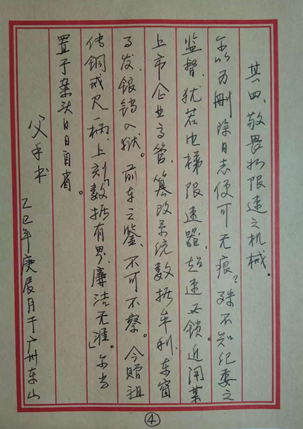 其四、敬畏如限速之机械。
尔以为删除日志便可无痕？殊不知纪委之
监督，犹若电梯限速器，超速必锁。近闻某
上市企业高管，篡改系统数据牟利，东窗
事发，锒铛入狱。前车之鉴，不可不察。今赠祖
传铜戒尺一柄，上刻“数据有界，廉洁无涯”，尔当
置于案头日日自省。
父手书
乙巳年庚辰月于广州东山
④